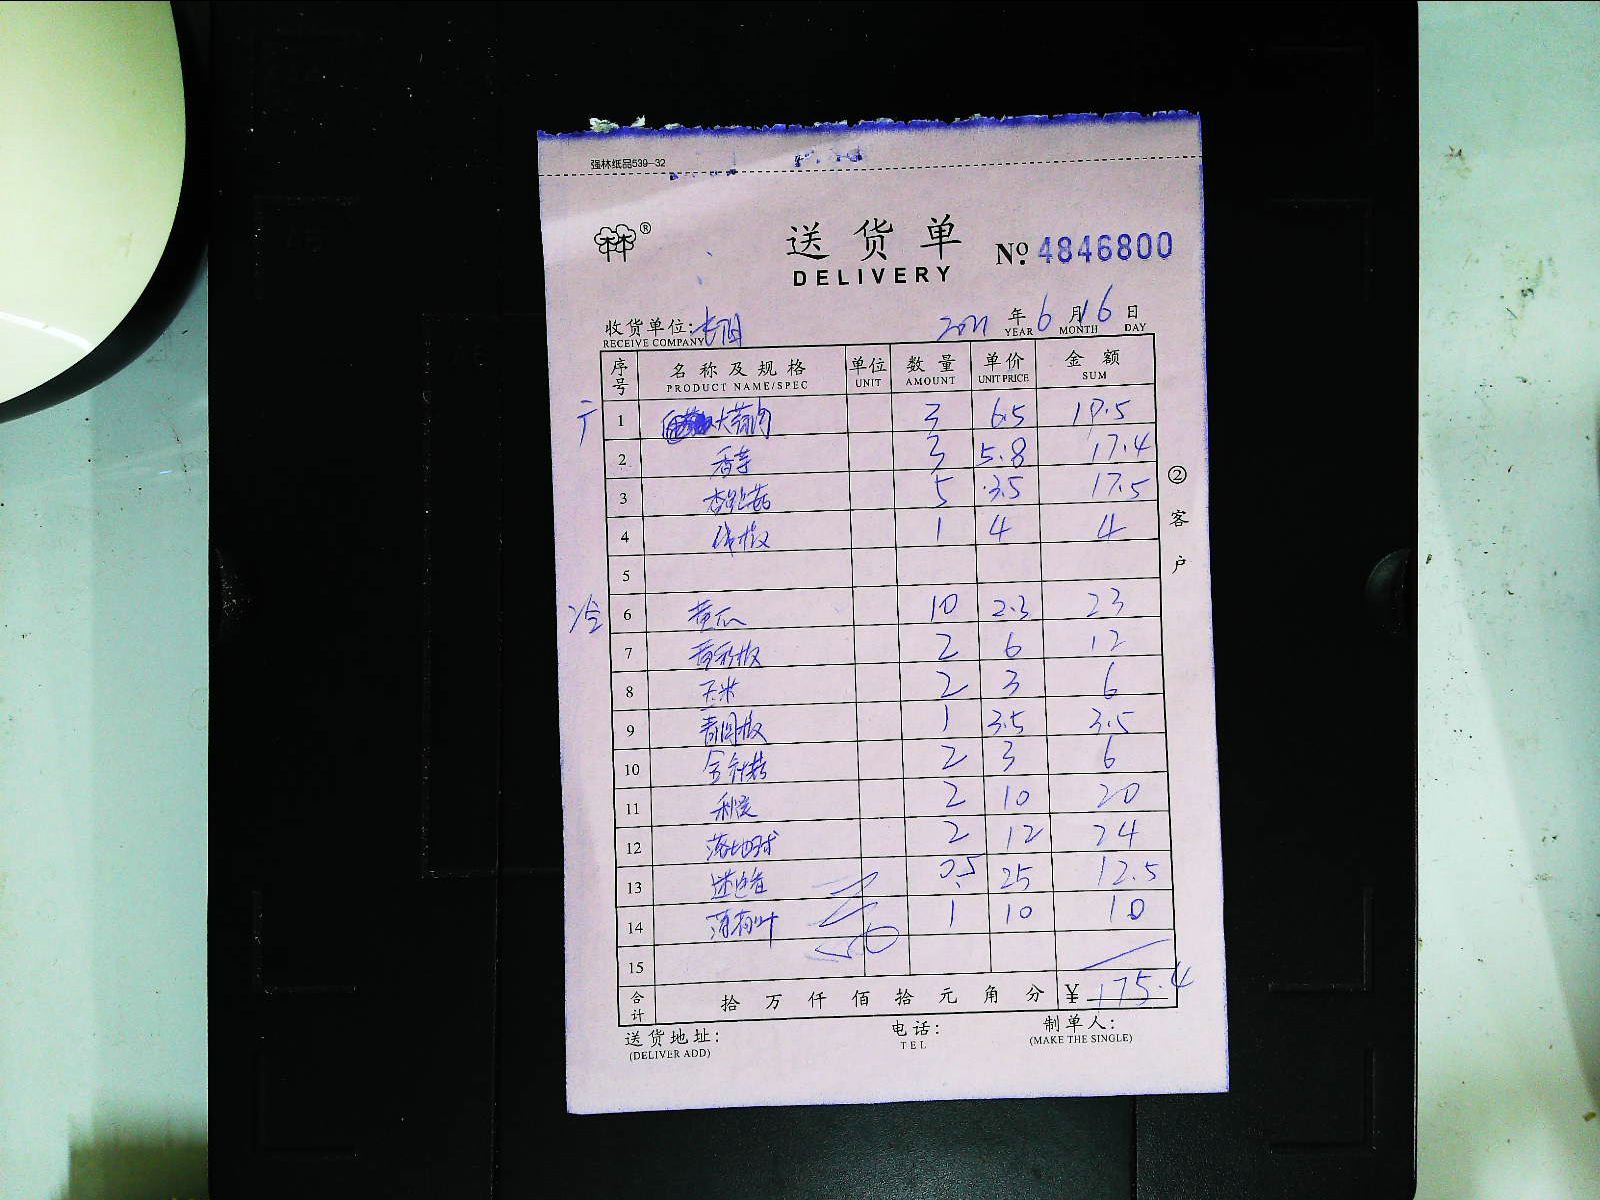 强林纸品539-32
林®
送货单
DELIVERY
No. 4846800
收货单位: 2021 年 6 月 16 日
RECEIVE COMPANY YEAR MONTH DAY
序号 名称及规格 单位 数量 单价 金额
PRODUCT NAME/SPEC UNIT AMOUNT UNIT PRICE SUM
1 3 6.5 19.5
2 香芹 3 5.8 17.4
3 杏鲍菇 5 3.5 17.5
4 线椒 1 4 4
5
冷 6 黄瓜 10 2.3 23
7 青彩椒 2 6 12
8 玉米 2 3 6
9 青圆椒 1 3.5 3.5
10 金针菇 2 3 6
11 2 10 20
12 2 12 24
13 迷迭香 0.5 25 12.5
14 薄荷叶 1 10 10
15
合计 拾万仟佰拾元角分 ¥ 175.4
送货地址: 电话: 制单人:
(DELIVER ADD) TEL (MAKE THE SINGLE)
②客户